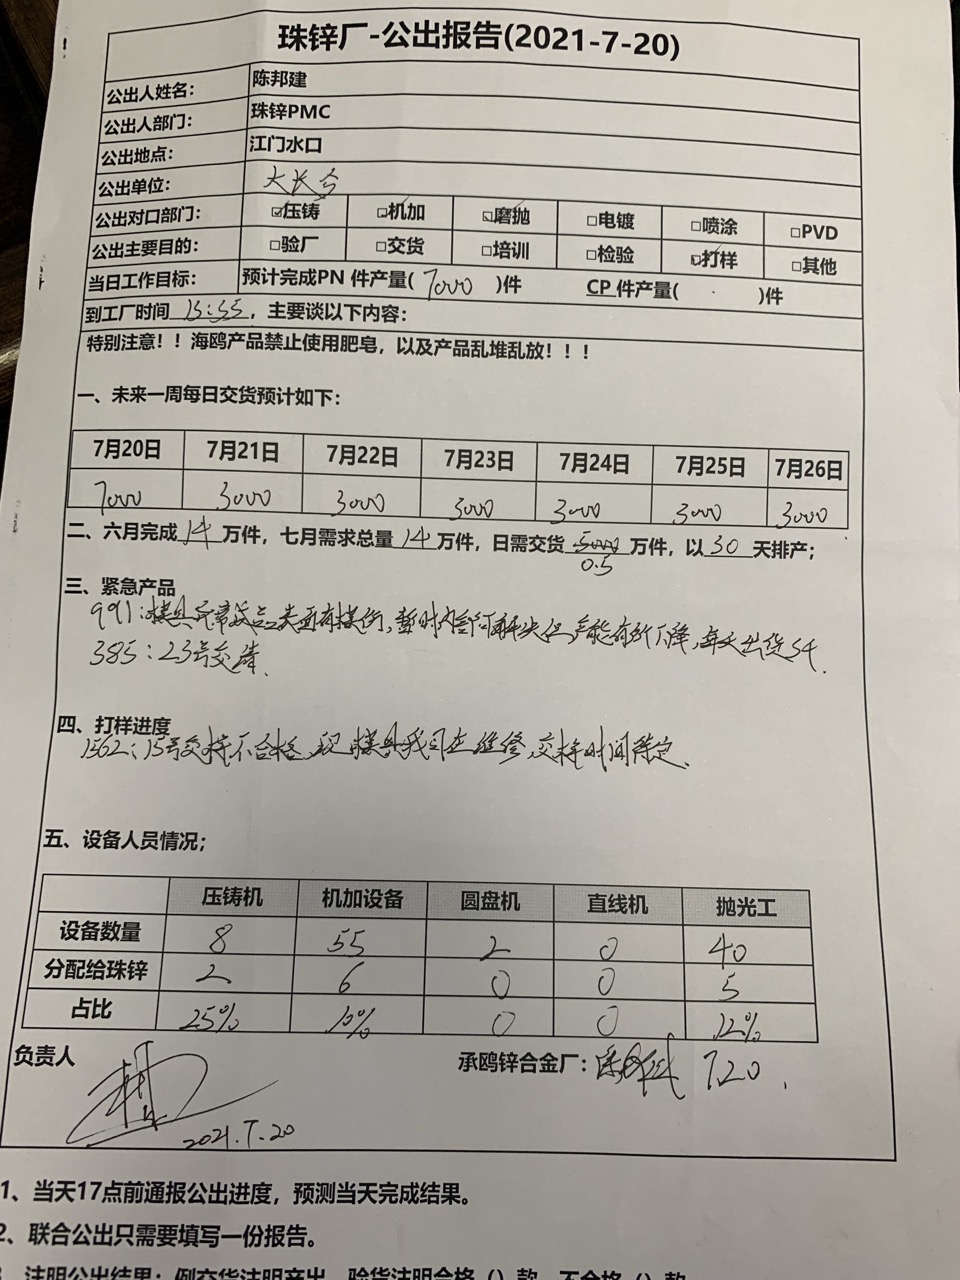 珠锌厂-公出报告(2021-7-20)
公出人姓名： 陈邦建
公出人部门： 珠锌PMC
公出地点： 江门水口
公出单位： 大长今
公出对口部门： ☑压铸 ☑机加 ☑磨抛 □电镀 □喷涂 □PVD
公出主要目的： □验厂 □交货 □培训 □检验 ☑打样 □其他
当日工作目标： 预计完成PN 件产量( 7000 )件 CP 件产量( )件
到工厂时间 15:55 ，主要谈以下内容：
特别注意！！海鸥产品禁止使用肥皂，以及产品乱堆乱放！！！
一、未来一周每日交货预计如下：
7月20日 7月21日 7月22日 7月23日 7月24日 7月25日 7月26日
7000 3000 3000 3000 3000 3000 3000
二、六月完成 14 万件，七月需求总量 14 万件，日需交货 5000 万件，以 30 天排产；
0.5
三、紧急产品
991：模具异常产品表面有模伤，暂时内部可解决但产能有所下降，每天出货5千
385：23号交清.
四、打样进度
1562：15号交样不合格，现模具我司在维修，交样时间待定.
五、设备人员情况；
压铸机 机加设备 圆盘机 直线机 抛光工
设备数量 8 55 2 0 40
分配给珠锌 2 6 0 0 5
占比 25% 10% 0 0 12%
负责人 承鸥锌合金厂： 7.20
2021.7.20
1、当天17点前通报公出进度，预测当天完成结果。
2、联合公出只需要填写一份报告。
3、注明公出结果：例交货注明产出、验货注明合格（）款，不合格（）款